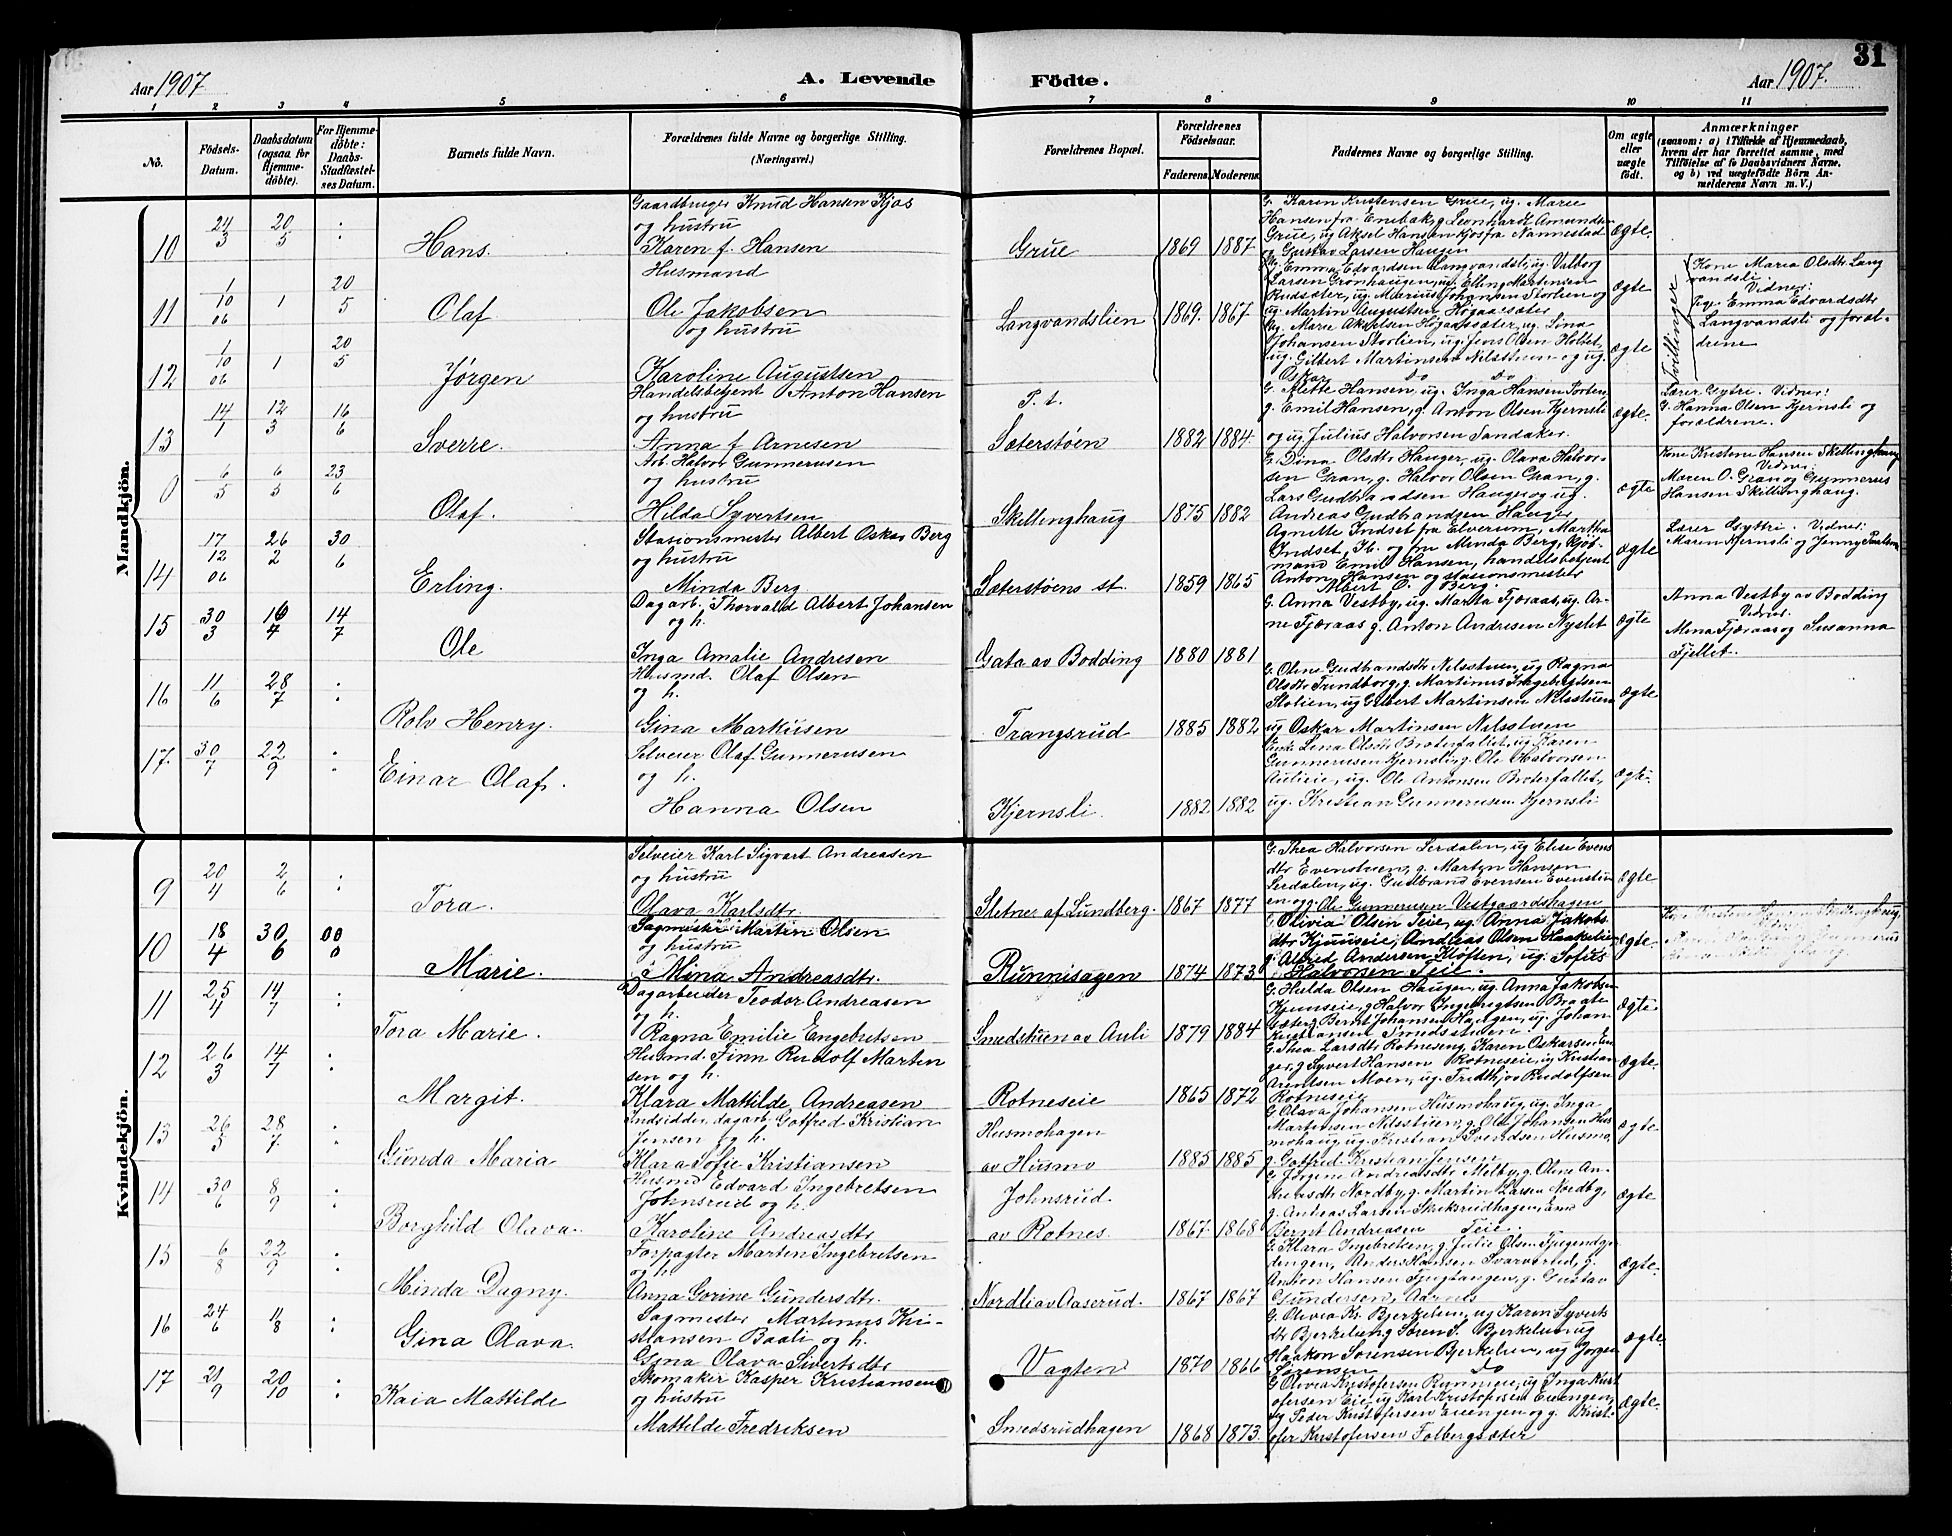 31
Aar 1907.
A. Levende
Födte.
Aar 1907.
1 2 3 4 5 6 7 8 9 10 11
No.
Födsels-Datum.
Daabsdatum (ogsaa for Hjemmedöbte).
For Hjemmedöbte: Daabs-Stadfæstelses Datum.
Barnets fulde Navn.
Forældrenes fulde Navne og borgerlige Stilling. (Næringsvei.)
Forældrenes Bopæl.
Forældrenes Födselsaar.
Faderens. Moderens.
Faddernes Navne og borgerlige Stilling.
Om ægte eller uægte födt.
Anmærkninger
(saasom: a) i Tilfælde af Hjemmedaab, hvem der har forrettet samme, med Tilföielse af to Daabsvidners Navne, og b) ved uægtefödte Börn Anmelderens Navn m. V.)
Mandkjön.
Gaardbruger Knud Hansen Kjos
og hustru
10 24/3 20/5 : Hans. Karen f. Hansen Grue 1869 1887 ægte.
G. Karen Kristensen Grue, ug. Marie
Hansen fra Enebak, g. Leonhardt Amundsen
Grue, ug Aksel Hansen Kjos fra Nannestad
ug. Gustav Larsen Haugen
Husmand
11 1/10 06 1 20/5 Olaf Ole Jakobsen Langvandslien 1869. 1867 ægte
og hustru
Ug. Emma Edvardsen Langvandsli, ug. Valborg
Larsen Grønhaugen, ug. Elling Martensen
Rudsæter, ug. Marius Johansen Storlien og
ug. Martin Augustsen Högaasæter
Tvillinger
Kone Maria Olsdtr. Lang
vandsli.
Vidner:
Pige Emma Edvardsdtr
Langvandsli og foræl-
drene
12 1/10 06 1 20/5 Jørgen Karoline Augustsen ægte
Ug. Marie Akselsen Högaasæter, ug. Lina
Johansen Storlien, ug. Jens Olsen Holtet,
ug. Gilbert Martinsen Nilsstuen og ug.
Oskar Do Do
Handelsbetjent Anton Hansen
og hustru
P. t.
13 14/1 12/3 16/6 Sverre. Anna f. Arnesen Sæterstøen 1882 1884. ægte.
G. Alette Hansen, ug. Inga Hansen
g. Emil Hansen, g. Anton Olsen Kjernsli
og ug. Julius Halvorsen Sandaker.
Lærer Gytri. Vidner:
G. Hanna Olsen Kjernsli og
forældrene.
Arb. Halvor Gunnerusen
og hustru
0 6/5 6/5 23/6 Olaf. Hilda Syvertsen Skillinghaug 1875 1882 ægte
G. Dina Olsdtr Hauger, ug. Olava Halvor-
sen Gran, g. Halvor Olsen Gran, g.
Lars Gudbrandsen Hauger og ug.
Andreas Gudbrandsen Hauger
Kone Kristene Hansen Skillinghaug
Vidner:
Maren O. Gran og Gunnerus
Hansen Skillinghaug.
Stasionsmester Albert Oskar Berg
og hustru
14 17/12 06 26/2 30/6 Erling. Minda Berg Sæterstøens st. 1859 1865 ægte
Agnette Indset fra Elverum, Martha
Indset, H. og fru Minda Berg, kjøb-
mand Emil Hansen, handelsbetjent
Anton Hansen og stasionsmester
Albert O. Berg.
Lærer Gyttri. Vidner:
Maren Kjernsli og Jenny
Dagarb. Thorvald Albert Johansen
og h.
15 30/3 14/7 Ole Inga Amalie Andresen Gata av Bodding 1880 1881 ægte
G. Anna Vestby, ug. Marta Fjæraas, ug. Ar-
ne Fjæraas g. Anton Andresen Nystet
Anna Vestby av Bodding
Vidner.
Mena Fjæraas og Susanna
Fjellet.
Husmd. Olaf Olsen
og h.
16 11/6 28/7 : Rolv Henry. Gina Markusen Trangsrud 1885 1882 ægte
G. Oline Gudbrandsdtr Nilsstuen, ug Ragna
Olsdtr Trondborg, g. Martinus Ingebrigtsen
Stolien, ug Gilbert Martinsen Nilsstuen
ug Oskar Martinsen Nilsstuen
Selveier Olaf Gunnerusen
og h.
17. 30/7 22/9 : Einar Olaf. Hanna Olsen Kjernsli. 1882 1882 ægte.
Lina Olsdtr Braterfallet, ug. Karen
Gunnerusen Kjernsli, g. Ole Halvorsen
Aulieie, ug. Ole Antonsen Braterfallet,
ug. Kristian Gunnerusen Kjernsli
Kvindekjön.
Selveier Karl Sigvart Andreasen
og hustru
9 20/4 2/6 : Tora. Olava Karlsdtr. Sletner af Lundberg. 1867 1877 ægte
G. Thea Halvorsen Serdalen, ug Elise Evens
dtr Evenstuen, g. Martin Hansen
Serdalen, ug. Gudbrand Evensen Evenstu
en og g. Ole Gunnerusen Vestgaardshagen
Sagmester Martin Olsen
og hustru
10 18/4 30/6 00/0 Marie. Mina Andreasdtr. Runnisagen 1874 1873 ægte.
G. Olivia Olsen Teie, ug. Anna Jakobs
dtr Kjünseie, Andreas Olsen Haakelien
g. Alfred Andersen Kløften, ug. Sofus
Halvorsen Teie.
Dagarbeider Teodor Andreasen
og h.
11 25/4 14/7 : Tora Marie. Ragna Emilie Engebretsen Smedstuen av Auli 1879 1884 ægte
G. Hulda Olsen Haugen, ug. Anna Jakobsen
Kjünseie, g Halvor Ingebrigtsen Braate
Sæter, g Bernt Johansen Haugen, ug. Johan
Kristiansen Smedsstuen.
Husmd. Finn Rudolf Martin
sen og h.
12 26/3 14/7 : Margit. Klara Mattilde Andreasen Rotneseie 1865 1872 ægte.
G. Thea Larsdtr Rotneseng, Karen Oskarsen En
ger, g Syvert Hansen Rotneseie, ug Kristian
Arentsen Moen, ug. Fridthjov Rudolfsen
Rotneseie
Indridder, dagarb. Gotfred Kristian
Jensen og h.
13 26/5 28/7 : Gunda Maria Klara Sofie Kristiansen Husmohagen
av Husmo 1885 1885 ægte.
G Olava Johansen Husmohaug, ug. Inga
Martensen Nilsstuen, g. Ole Johansen Hus
mohaug, ug. Kristian Svendsen Husmo,
g. Gotfred Kristian Jensen
Husmd Edvard Ingebretsen
Johnsrud og h.
14 30/6 8/9 : Borghild Olava. Karoline Andreasdtr Johnsrud.
av Rotnes. 1867. 1868 ægte
G. Jørgine Andreasdtr Melby, g. Oline An-
dersdtr Nordby, g. Martin Larsen Nordby,
g. Andreas Larsen Skriksrudhagen,
Bernt Andreasen Teie.
Forpagter Martin Ingebretsen
og h.
15 6/8 22/9 : Minda Dagny. Anna Gorine Gundersdtr. Nordli av Aaserud. 1867 1867 ægte.
G. Klara Ingebretsen, g. Julie Olsen
Anders Hansen Svarverud, g.
Anton Hansen Fjugtangen, g. Gustav
Gundersen, Aarnes
Sagmester Martinus Kri-
stiansen Baali og h.
16 24/6 11/8 : Gina Olava. Gina Olava Sivertsdtr Vagten 1870 1866 ægte.
G. Olivia Kr. Bjerkelien, ug Karen Syverts
dtr Bjerkelieng Søren S. Bjerkelien ug
Haakon Sørensen Bjerkelien, ug Jørgen
Sørensen Do
Skomaker Kasper Kristiansen
og hustru
17 21/9 20/10 : Kaia Mattilde Mattilde Fredriksen Smedsrudhagen 1868 1873. ægte.
G Olivia Kristofersen Runneie, ug. Inga Krist
ofersen Eie, ug Karl Kristofersen Eiengen,
ug Peder Kristofersen Eiengen og g. Krist-
ofer Kristofersen Folbergsæter